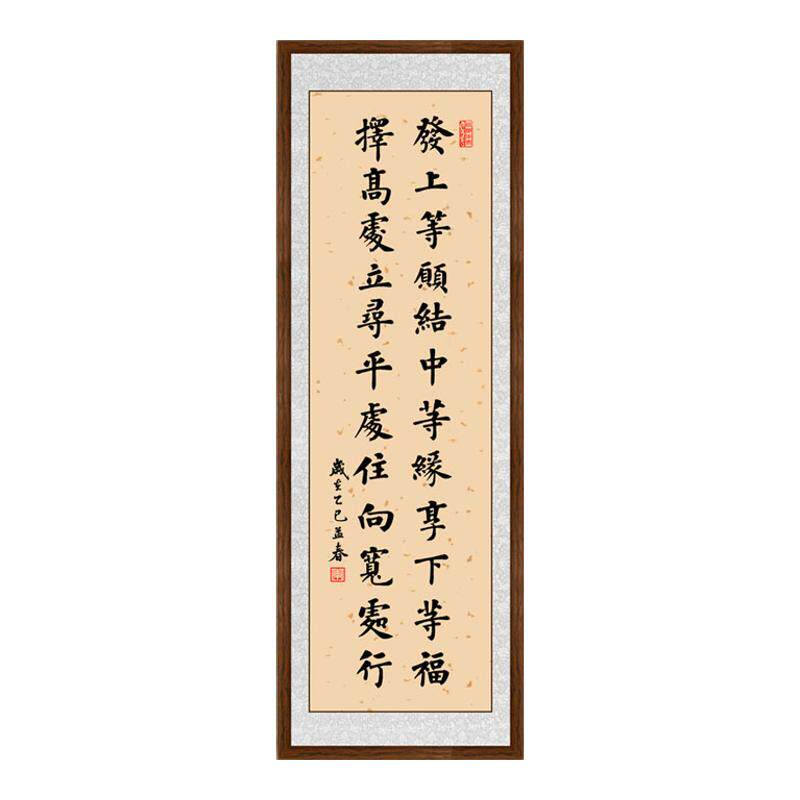 發上等願結中等緣享下等福
擇高處立尋平處住向寬處行
歲在乙巳益春